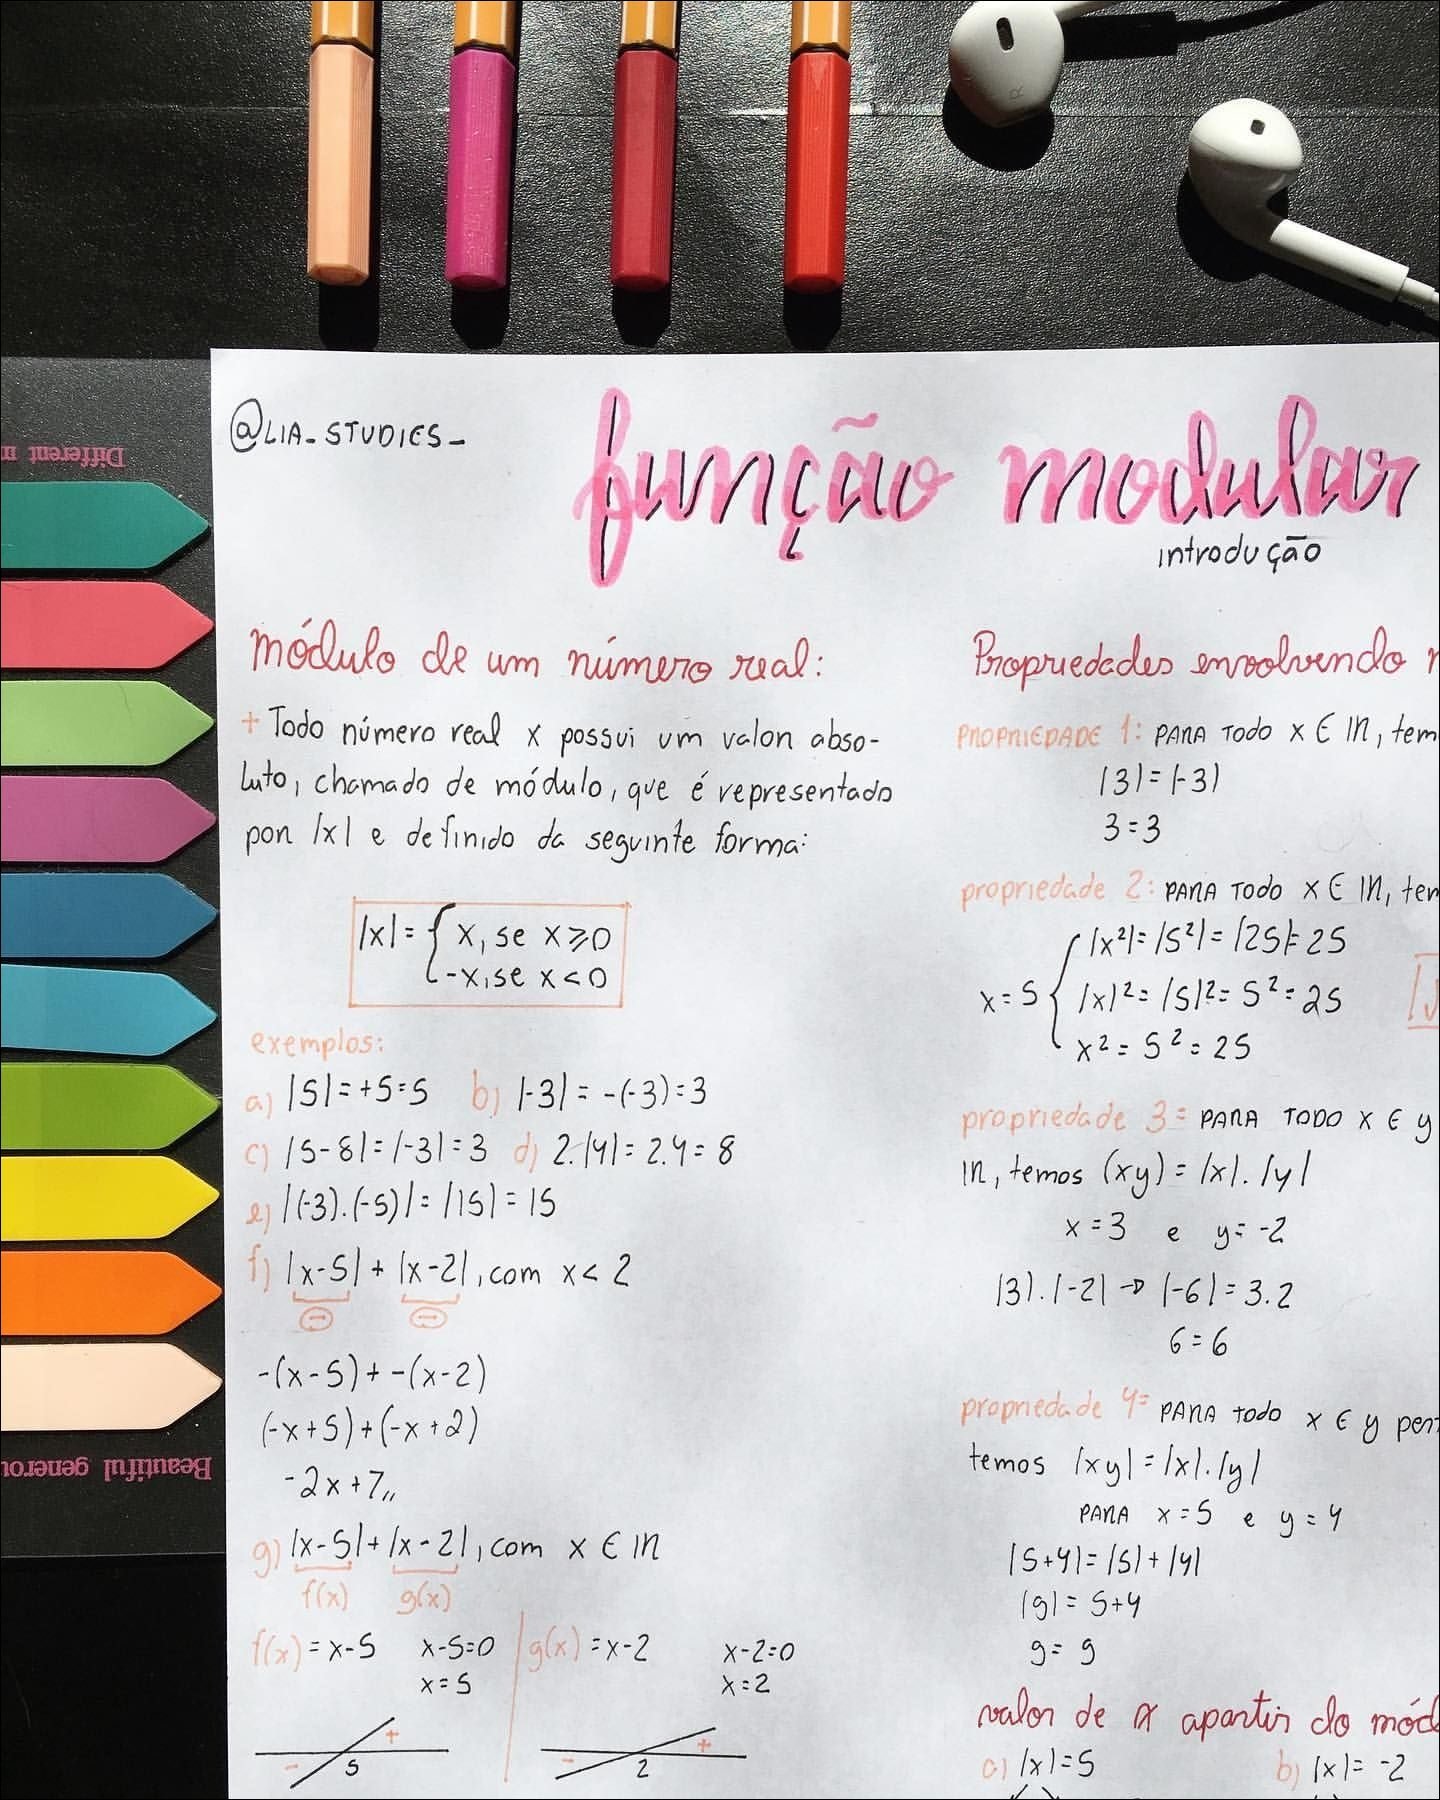 Different
@LIA_STUDIES_
função modular
introdução
módulo de um número real:
+ Todo número real x possui um valon abso-
luto, chamado de módulo, que é representado
pon |x| e definido da seguinte forma:
|x| = { x, se x ⩾ 0
-x, se x < 0
exemplos:
a) |5| = +5 = 5 b) |-3| = -(-3) = 3
c) |5-8| = |-3| = 3 d) 2.|4| = 2.4 = 8
e) |(-3).(-5)| = |15| = 15
f) |x-5| + |x-2|, com x < 2
⊖ ⊖
-(x-5) + -(x-2)
(-x+5)+(-x+2)
-2x+7,,
g) |x-5| + |x-2|, com x ∈ IR
f(x) g(x)
f(x) = x-5 x-5=0 g(x) = x-2 x-2=0
x=5 x=2
- 5 + - 2 +
Propriedades envolvendo
PROPRIEDADE 1: PARA TODO x ∈ IR, tem
|3| = |-3|
3 = 3
propriedade 2: PARA TODO x ∈ IR, tem
x = 5 { |x²| = |5²| = |25| = 25
|x|² = |5|² = 5² = 25
x² = 5² = 25
propriedade 3 = PARA TODO x E y
IR, temos (xy) = |x|.|y|
x = 3 e y = -2
|3|.|-2| → |-6| = 3.2
6 = 6
propriedade 4 = PARA TODO x E y pert
temos |xy| = |x|.|y|
PARA x = 5 e y = 4
|5+4| = |5| + |4|
|9| = 5+4
9 = 9
valor de x apartir do mód
|x| = 5 b) |x| = -2
Beautiful generou